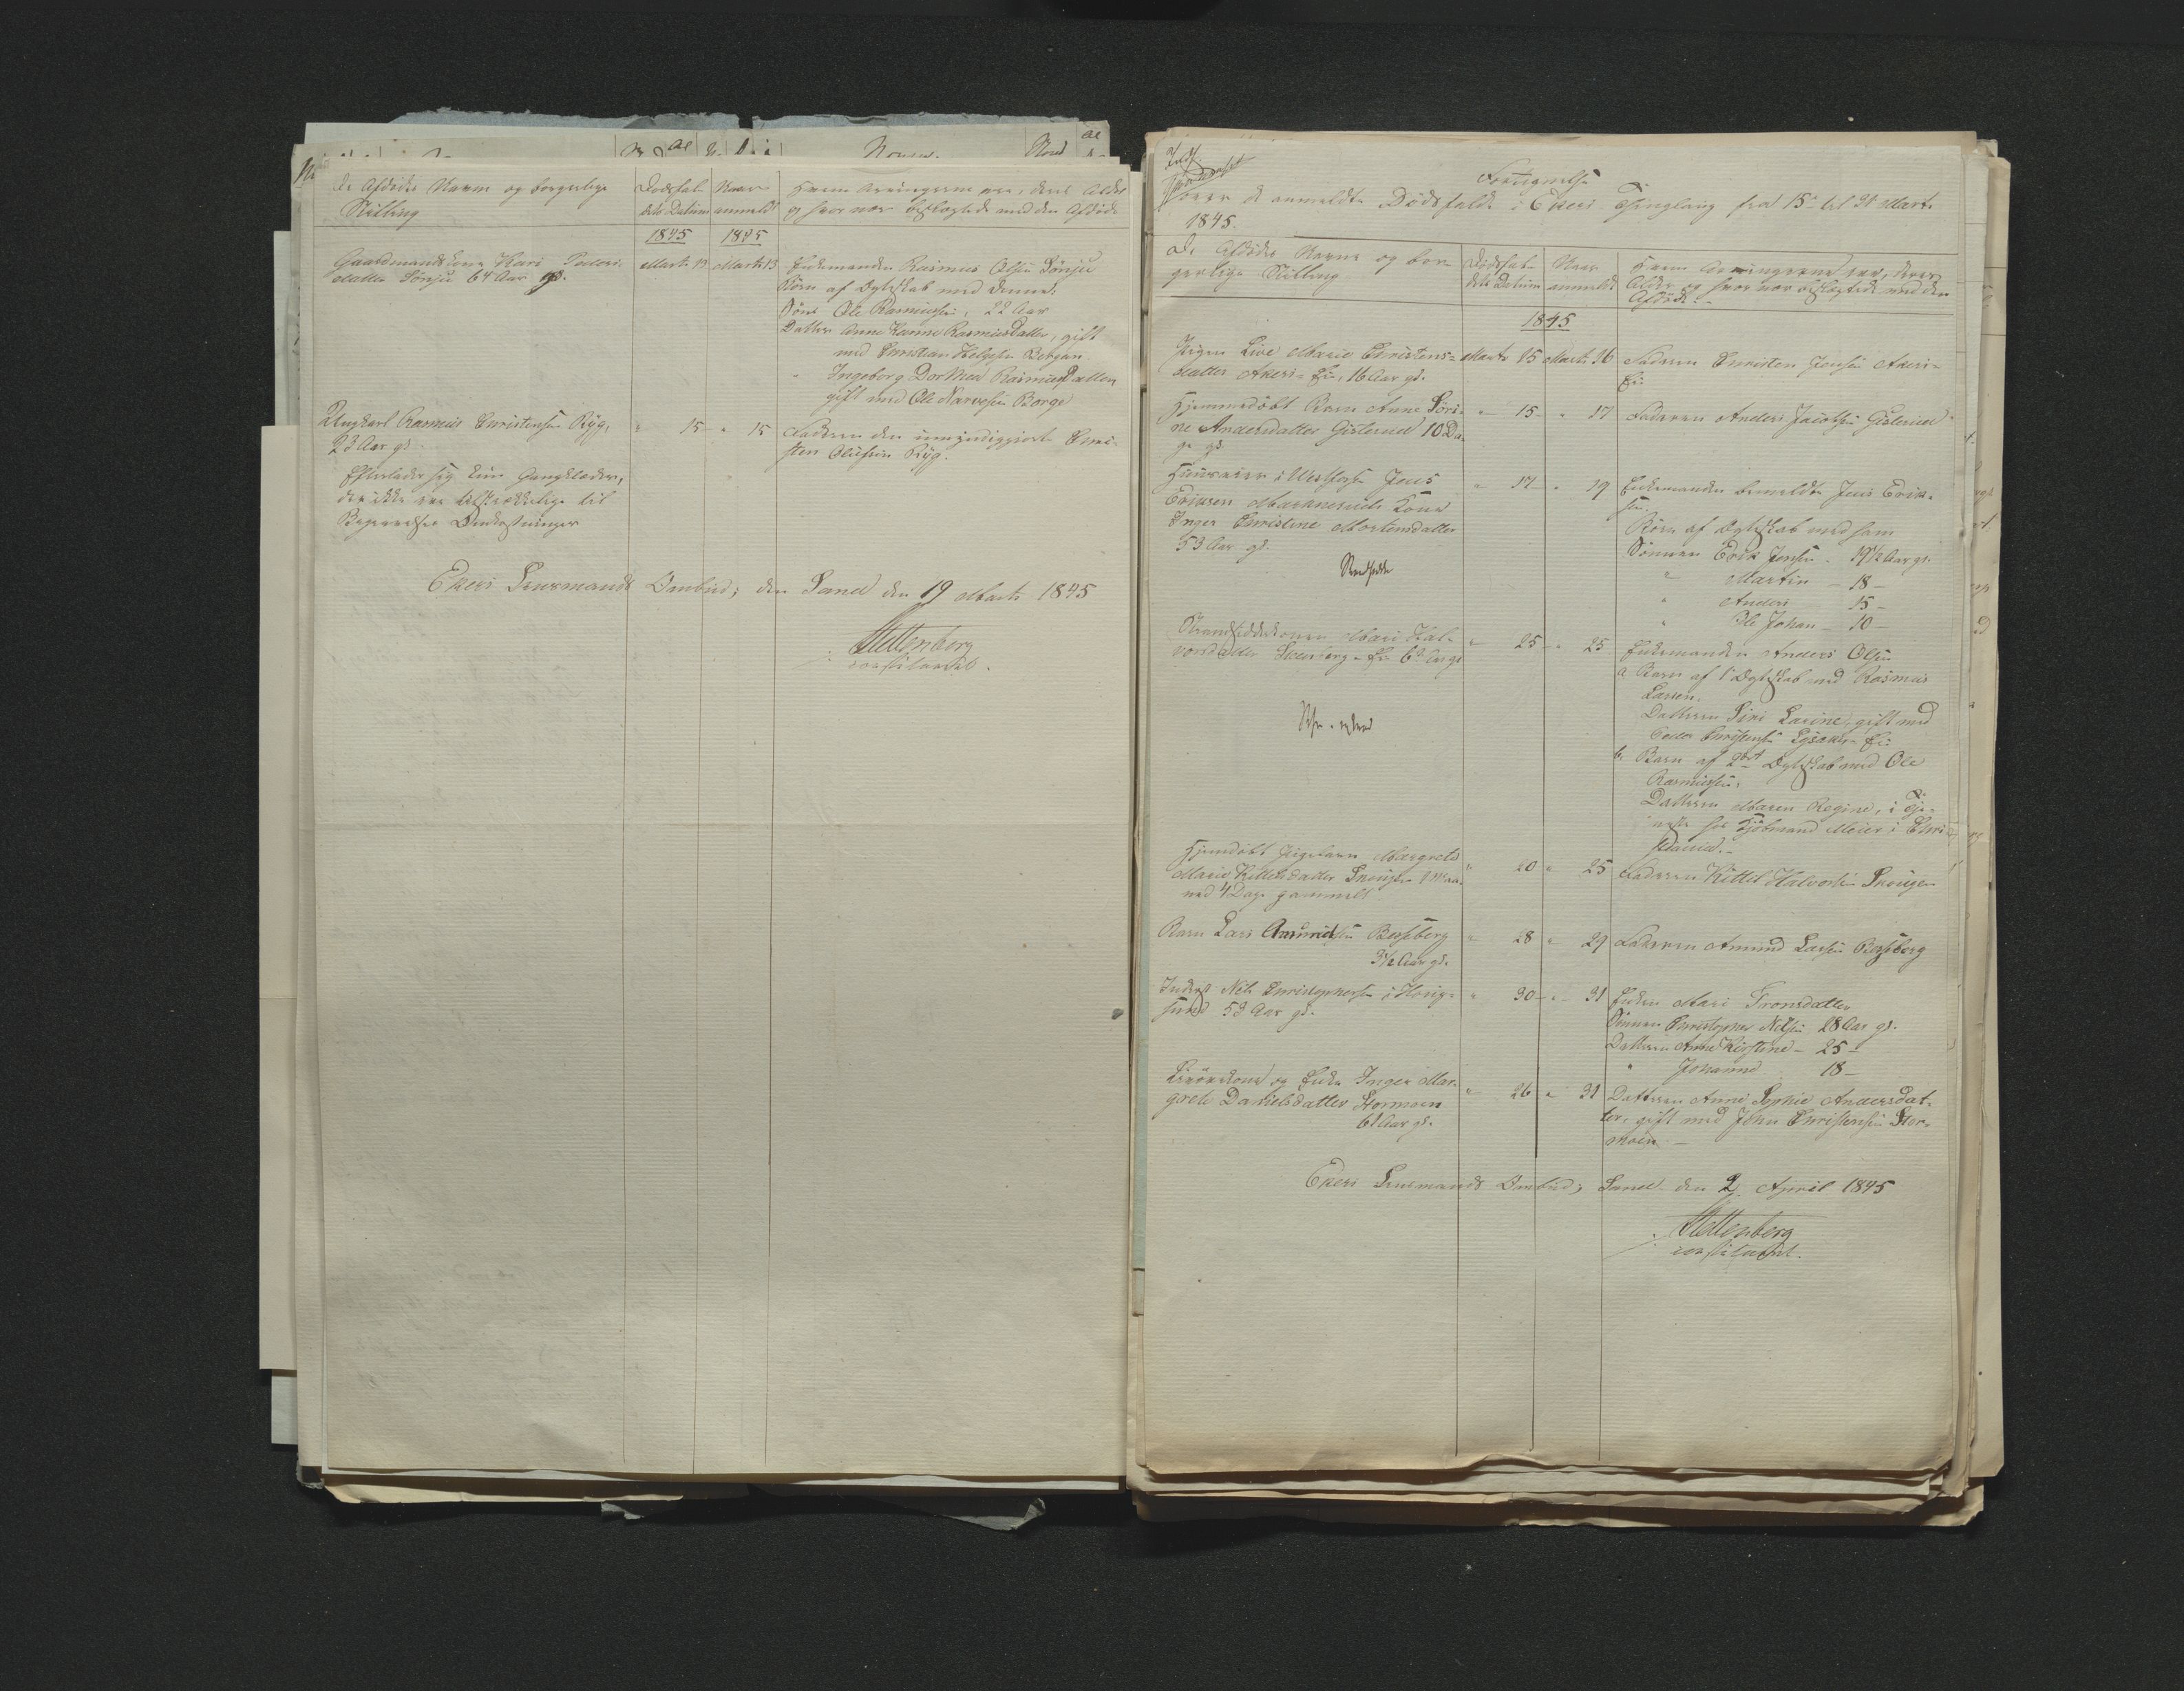 De Afdødes Navn og borgerlige
Stilling
Dødsfal-
dets Datum
Naar
anmeldt
Hvem Arvingerne ere, deres Alder
og hvor nær beslægtede med den Afdøde
1845
1845
Gaardmandskone Kari Peders-
datter Sønju 64 Aar gl.
Marts 13
Marts 13
Enkemanden Rasmus Olsen Sønju
Børn af Ægteskab med denne:
Søn Ole Rasmussen, 22 Aar
Datter Anne Karine Rasmusdatter, gift
med Christian Helgesen Bergan
" Ingeborg Dorthea Rasmusdatter
gift med Ole Narvesen Borge
Ungkarl Rasmus Christensen Ryg,
23 Aar gl.
" 15 " 15
Faderen den umyndiggjorte Chri-
sten Olufsen Ryg.
Efterlader sig kun Gangklæder,
der ikke ere tilstrækkelige til
Begravelses Omkostninger
Ekers Lensmands Ombud, den Sand den 19 Marts 1845
Stettenberg
constitueret.
Fortegnelse
over de anmeldte Dødsfalde i Ekers Thinglaug fra 15de til 31 Marts
1845.
De Afdødes Navne og bor-
gerlige Stilling
Dødsfal-
dets Datum
Naar
anmeldt
Hvem Arvingerne ere, deres
Alder og hvor nær beslægtede med den
Afdøde.
1845
Pigen Live Marie Christens-
datter Akers-Ei, 16 Aar gl.
Marts 15 Marts 16
Faderen Christen Jensen Akers-
Ei
Hjemmedøbt Barn Anne Søri-
ne Andersdatter Gislerud 10 Da-
ge gl.
" 15 " 17
Faderen Anders Jacobsen Gislerud
Huuseier i Vestfossen Jens
Eriksen Kone
Inger Christine Mortensdatter
53 Aar gl.
" 17 " 19
Enkemanden bemeldte Jens Erik-
sen.
Børn af Ægteskab med ham
Sønnen Erik Jensen - 19½ Aar gl.
" Martin - 18 -
" Anders 15 -
" Ole Johan - 10 -
Strandsidderkonen Mari Hal-
vorsdatter Ei Aar gl
" 25 " 25
Enkemanden Anders Olsen
a. Barn af 1ste Ægteskab med Rasmus
Larsen.
Datteren Siri Larine, gift med
Peder Christensen Lysaker-Ei
b. Barn af 2det Ægteskab med Ole
Rasmussen,
Datteren Maren Regine, i Tje-
neste hos Kjøbmand Meier i Chri-
stiania.
Hjemdøbt Pigebarn Margrete
Marie Kittelsdatter Skougen 1 Maa-
ned 4 Dage gammelt
" 20 " 25
Faderen Kittel Halvorsen Skougen
Barn Lars Amundsen Besseberg
3½ Aar gl.
" 28 " 29
Faderen Amund Larsen Besseberg
Inderst Nels Christophersen i Houg-
sund 53 Aar gl.
" 30 " 31
Enken Mari Tronsdatter
Sønnen Christopher Nelsen 28 Aar gl.
Datteren Anne Kirstine - 25 -
" Johanne 18 -
og Enke Inger Mar-
grete Danielsdatter Stormoen
61 Aar gl.
" 26 " 31
Datteren Anne Sophie Andersdat-
ter, gift med John Christensen Stor-
moen. -
Ekers Lensmands Ombud, Sand den 2. April 1845
Stettenberg
constitueret.